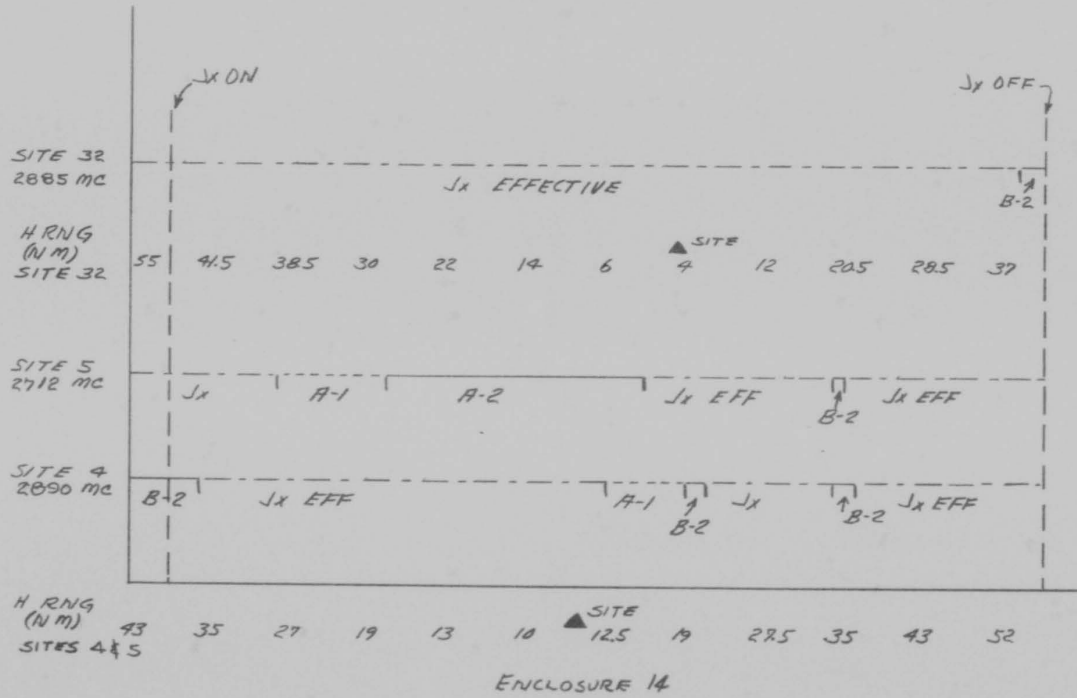 Jx ON
Jx OFF
SITE 32
2885 MC
Jx EFFECTIVE
B-2
H RNG
(NM)
SITE 32
SITE
55 41.5 38.5 30 22 14 6 4 12 20.5 28.5 37
SITE 5
2712 MC
Jx A-1 A-2 Jx EFF B-2 Jx EFF
SITE 4
2890 MC
B-2 Jx EFF A-1 B-2 Jx B-2 Jx EFF
H RNG
(NM)
SITES 4 & 5
SITE
43 35 27 19 13 10 12.5 19 27.5 35 43 52
ENCLOSURE 14